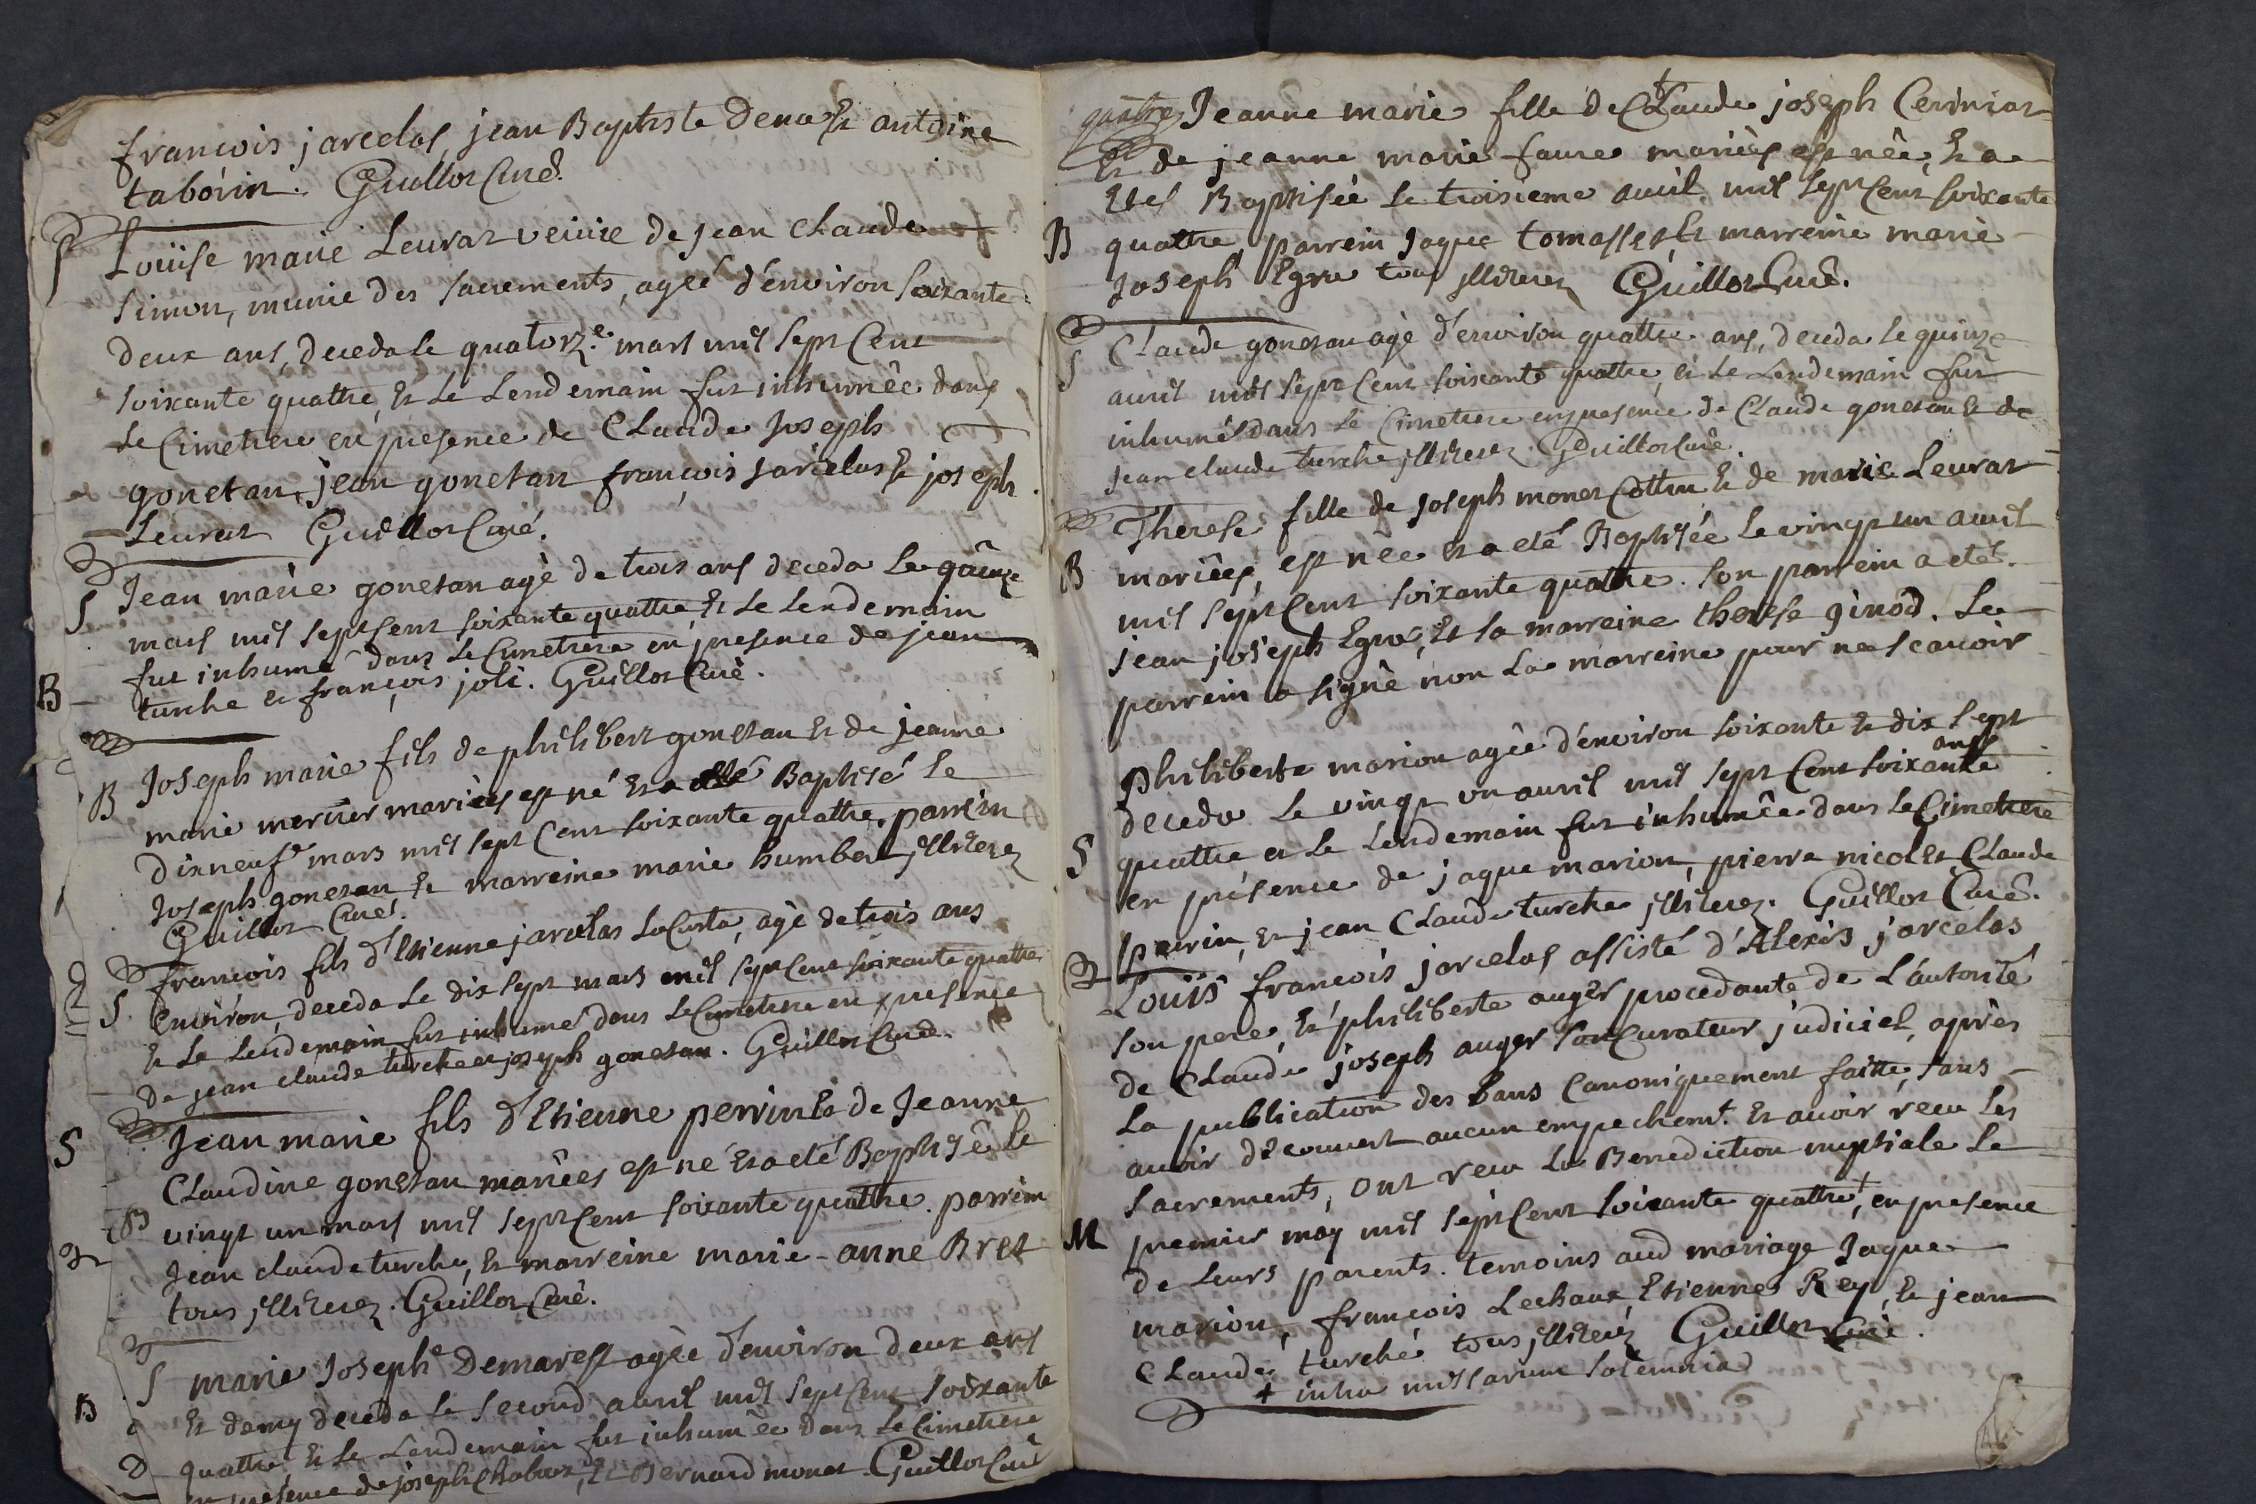 francois jarcelas, jean Baptiste Dena Et antoine
taborin. Guillot Curé.
S Loüise marie Leurat veuve de jean claude
Simon, munie des sacrements, ageé d'environ soixante
deux ans, deceda le quatorz.e mars mil sept Cent
soixante quattre, Et Le Lendemain fut inhumêe dans
Le Cimetiere en presence de Claude Joseph
gonetan, jean gonetan françois jarcelas Et joseph
Leurat Guillot Curé.
S Jean marie gonetan agè de trois ans deceda Le quinze
mars mil sept Cent soixante quattre, Et Le Lendemain
fut inhumé dans Le Cimetiere en presence de jean
B turche Et françois joli. Guillot Curè.
B Joseph marie fils de philibert gonetan Et de jeanne
marie mercier mariées est né Et a eté Baptisé le
dixneuf mars mil sept Cent soixante quattre. parrein
Joseph gonetan Et marreine marie humbert jlliterez
Guillot Curé.
francois fils d'Etienne jarcelas LaCurta, agè de trois ans
S. environ, deceda Le dix sept mars mil sept Cent soixante quattre
Et Le Lendemain fut inhumé dans Le Cimetiere en presence
De jean claude turche Et joseph gonetan. Guillot Curè.
S Jean marie fils d'Etienne perrin Et de Jeanne
Claudine gonetan mariêes est né Et a eté Baptisê le
B vingt un mars mil sept Cent soixante quattre. parrein
Jean claude turche, Et marreine marie-anne Bret
tous jlliterez. Guillot Curè.
S marie Josephe Demarest agèe d'environ deux ans
B Et demy deceda Le second avril mil sept Cent soixante
quattre Et Le Lendemain fut inhumèe dans Le Cimetiere
en presence de joseph Chabout, Et Bernard monet Guillot Curè
quattre Jeanne marie fille de Claude joseph Cerviniat
Et de jeanne marie faure mariées est nêe, Et a
Eté Baptisée Le troisieme avril mil sept Cent soixante
B quattre, parrein Jaque tomasset Et marreine marie
Joseph Egra tous jlliterez Guillot Curê.
S Claude gonetan agè d'environ quattre ans, deceda le quinze
avril mil sept Cent soixante quattre, Et Le Lendemain fut
inhumé dans Le Cimetiere en presence de Claude gonetan Et de
jean claude turche jlliterez. Guillot Curè.
Therese fille de Joseph monet Cottin Et de marie Leurat
B mariées, est nêe Et a eté Baptisée Le vingt un avril
mil sept Cent soixante quattre. Son parrein a eté
jean joseph Egra, Et sa marreine therese ginod. Le
parrein a signè non La marreine pour ne scavoir
philiberte marion agèe d'environ soixante Et dix sept
ans
deceda Le vingt un avril mil sept Cent soixante
S quattre et Le Lendemain fut inhumêe dans Le Cimetiere
en présence de jaque marion, pierre nicolet Claude
perrin, Et jean Claude turche jlliterez. Guillot Curê.
Louis francois jarcelas assisté d'Alexis jarcelas
son pere, Et philiberte auger procedante de L'autorité
de Claude joseph auger son Curateur judiciel, après
La publication des bans Canoniquement faitte, sans
avoir découvert aucun empechemt. Et avoir recu Les
Sacrements, ont recu La Benediction nuptiale Le
M premier may mil sept Cent soixante quattre +, en presence
de Leurs parents. temoins aud mariage Jaque
marion, francois Lechaux Etienne Rey, Et jean
Claude turche tous jlliterez Guillot Curé.
+ intra missarum solemnia